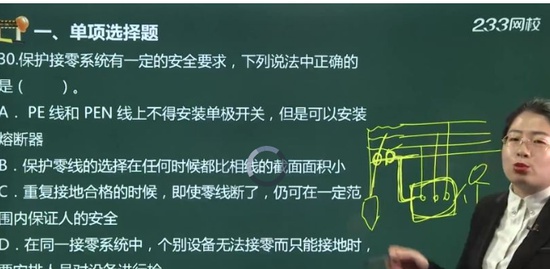 一、单项选择题
233网校
30.保护接零系统有一定的安全要求，下列说法中正确的
是（　　）。
A．PE 线和 PEN 线上不得安装单极开关，但是可以安装
熔断器
B．保护零线的选择在任何时候都比相线的截面面积小
C．重复接地合格的时候，即使零线断了，仍可在一定范
围内保证人的安全
D．在同一接零系统中，个别设备无法接零而只能接地时，